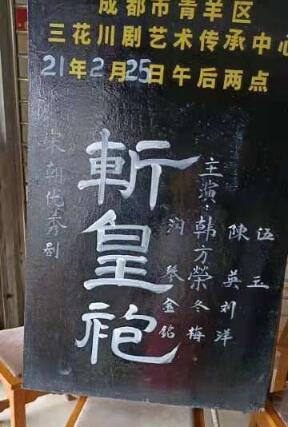 成都市青羊区
三花川剧艺术传承中心
21年2月25日午后两点
宋朝优秀剧
斬皇袍
主演:韩方榮 冬梅
陳英 刘洋
伍玉
金钻